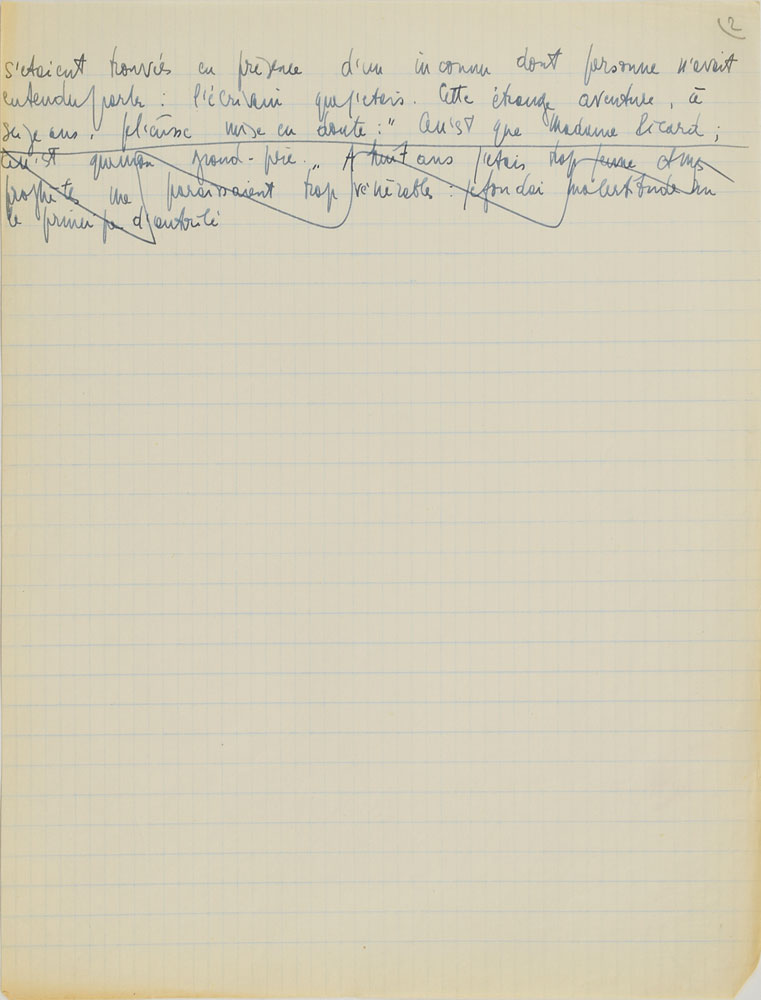 2
s'étaient trouvés en présence d'un inconnu dont personne n'avait
entendu parler : l'écrivain que j'étais. Cette étrange aventure, à
seize ans, je l'eusse mise en doute : " Ce n'est que Madame Picard ;
Ce n'est que mon grand-père. " A huit ans j'étais trop jeune et mes
prophètes me paraissaient trop vénérables : je fondai ma certitude sur
le principe d'autorité